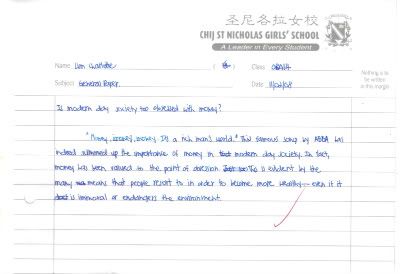 圣尼各拉女校
CHIJ ST NICHOLAS GIRLS' SCHOOL
A Leader in Every Student
Name Charlotte ( ) Class
Subject General Paper Date
Nothing is to be written in this margin
Is modern day society too obsessed with money?
"Money, money, money. It's a rich man's world." This famous song by ABBA has
indeed summed up the importance of money in modern day society. In fact,
money has been valued to the point of obsession. This is evident by the
many means that people resort to in order to become more wealthy — even if it
is immoral or endangers the environment.